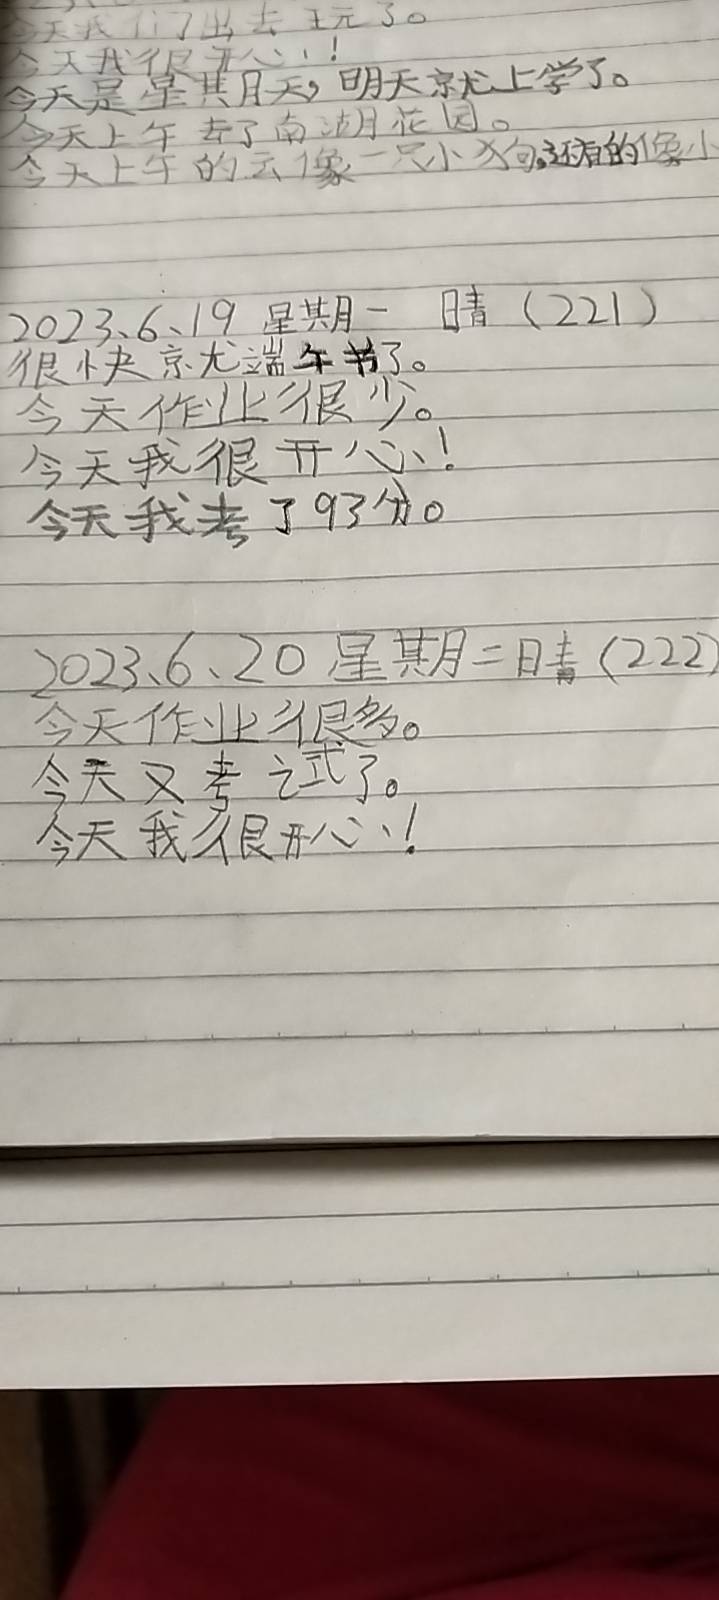 今天我们了出去玩了。
今天我很开心！
今天是星期天，明天就上学了。
今天上午去了南湖花园。
今天上午的云像一只小狗，还有的像小
2023、6、19 星期一 晴（221）
很快就端午节了。
今天作业很少。
今天我很开心！
今天我考了93分。
2023、6、20 星期二晴（222）
今天作业很多。
今天又考试了。
今天我很开心！